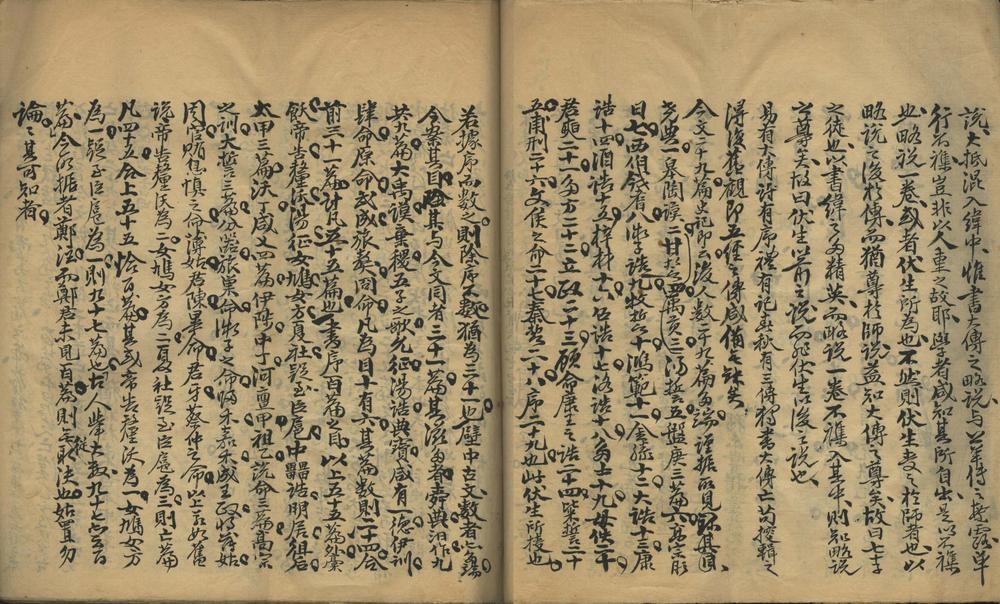 說大抵混入緯中惟書大傳之略說与公羊傳之繁露單
行不雜豈非以人重之故耶學者咸知其所自出是以不雜
也略說一卷或者伏生所為也不然則伏生受之於師者也以
略說之後於傳而猶尊於師說益知大傳之尊矣故曰七十
之徒也以書緯之多精英而略說一卷不雜入其中則知略說
之尊矣故曰伏生以前之說而非伏生以後之說也
易有大傳詩有序禮有記春秋有三傳獨書大傳亡苟搜輯之
得復舊觀即五經之傳咸備無缺矣
今文二十九篇史記所云後人數二十九篇多端謹据所見錄其目
堯典一皋陶謨二甘誓四禹貢三湯誓五盤庚三篇六高宗肜
日七西伯戡耆八微子九牧誓十鴻範十一金縢十二大誥十三康
誥十四酒誥十五梓材十六召誥十七洛誥十八多士十九毋佚二十
君奭二十一多方二十二立政二十三顧命康王之誥二十四粊誓二十
五甫刑二十六文侯之命二十七秦誓二十八序二十九也此伏生所授也
若據序而數之則除序不數猶為三十一也壁中古文數者亡
今案其目除其与今文同者三十一篇其溢多者舜典汩作九
共九篇大禹謨棄稷五子之歌允征湯誥典寶咸有一德伊訓
肆命原命武成旅獒冏命凡為目十有六其篇數則二十四合
前三十一篇計凡五十五篇也書序百篇之目以上五十五篇外稾
飫帝告釐沃湯征女鳩女方夏社疑至臣扈中囂誥明居徂后
太甲三篇沃丁咸乂四篇伊陟中丁河亶甲祖乙說命三篇高宗
之訓大誓三篇分器旅巢命微子之命歸禾嘉禾成王政將蒲姑
周官賄息慎之命薄姑君陳畢命君牙蔡仲之命以上不如舊
說帝告釐沃為二女鳩女方為二夏社疑至臣扈為三則亡篇
凡四十五合上五十五恰百篇其或帝告釐沃為一女鳩女方
為一疑至臣扈為一則九十七篇也古人數九十七當百
篇今所據者鄭注而鄭君未見百篇則無取法也姑置勿
論之其可知者